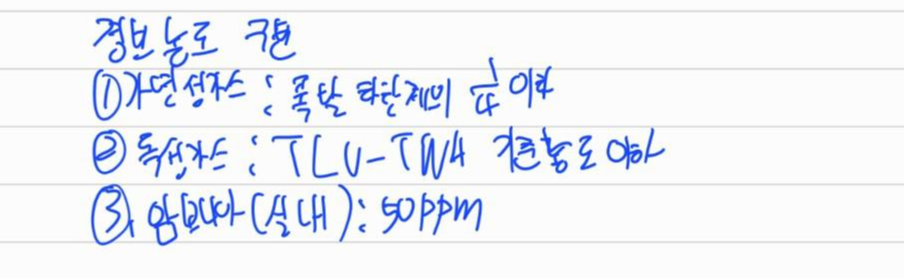 경보농도 기준
① 가연성가스 : 폭발하한계의 1/4 이하
② 독성가스 : TLV-TWA 기준농도 이하
③ 암모니아(실내) : 50ppm